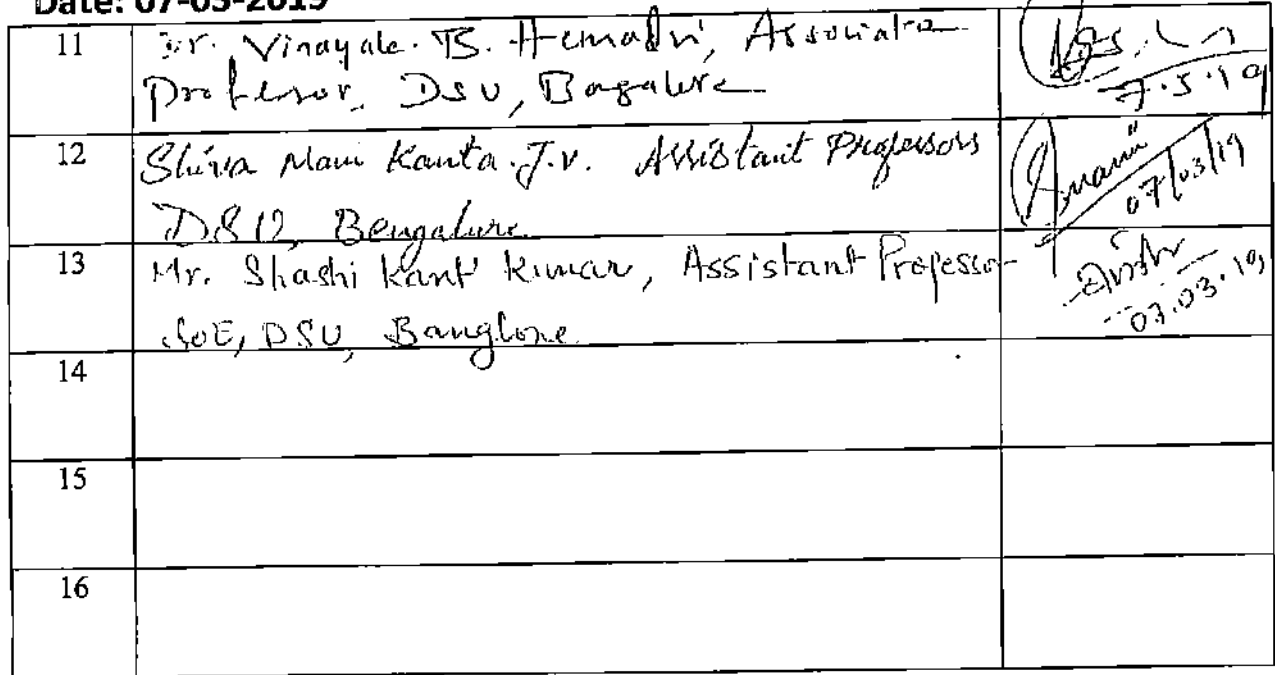 Date: 07-03-2019
11
Dr. Vinayak. B. Hemadri, Associate
Professor, DSU, Bagalure
7.5.19
12
Shiva Mani Kanta. J.V. Assistant Professors
DSU, Bengalure
07/03/19
13
Mr. Shashi Kant Kumar, Assistant Professor
SoE, DSU, Banglore
07.03.19
14
15
16